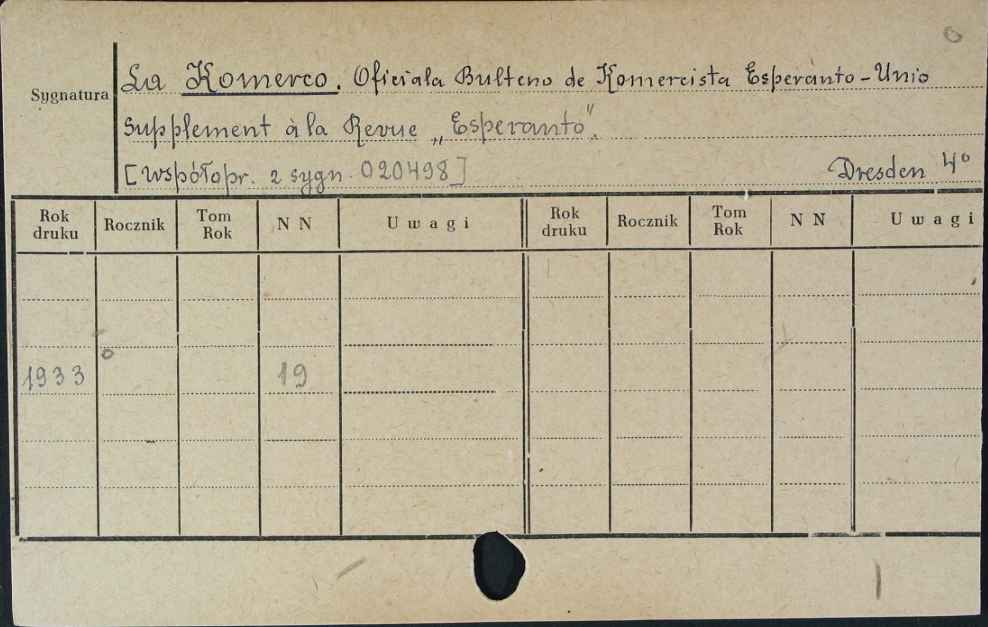 Sygnatura
La Komerco. Oficiala Bulteno de Komercista Esperanto-Unio
Supplement à la Revue „Esperanto”.
[współopr. z sygn. 020498] Dresden 4°
Rok druku Rocznik Tom Rok N N Uwagi Rok druku Rocznik Tom Rok N N Uwagi
1933 19